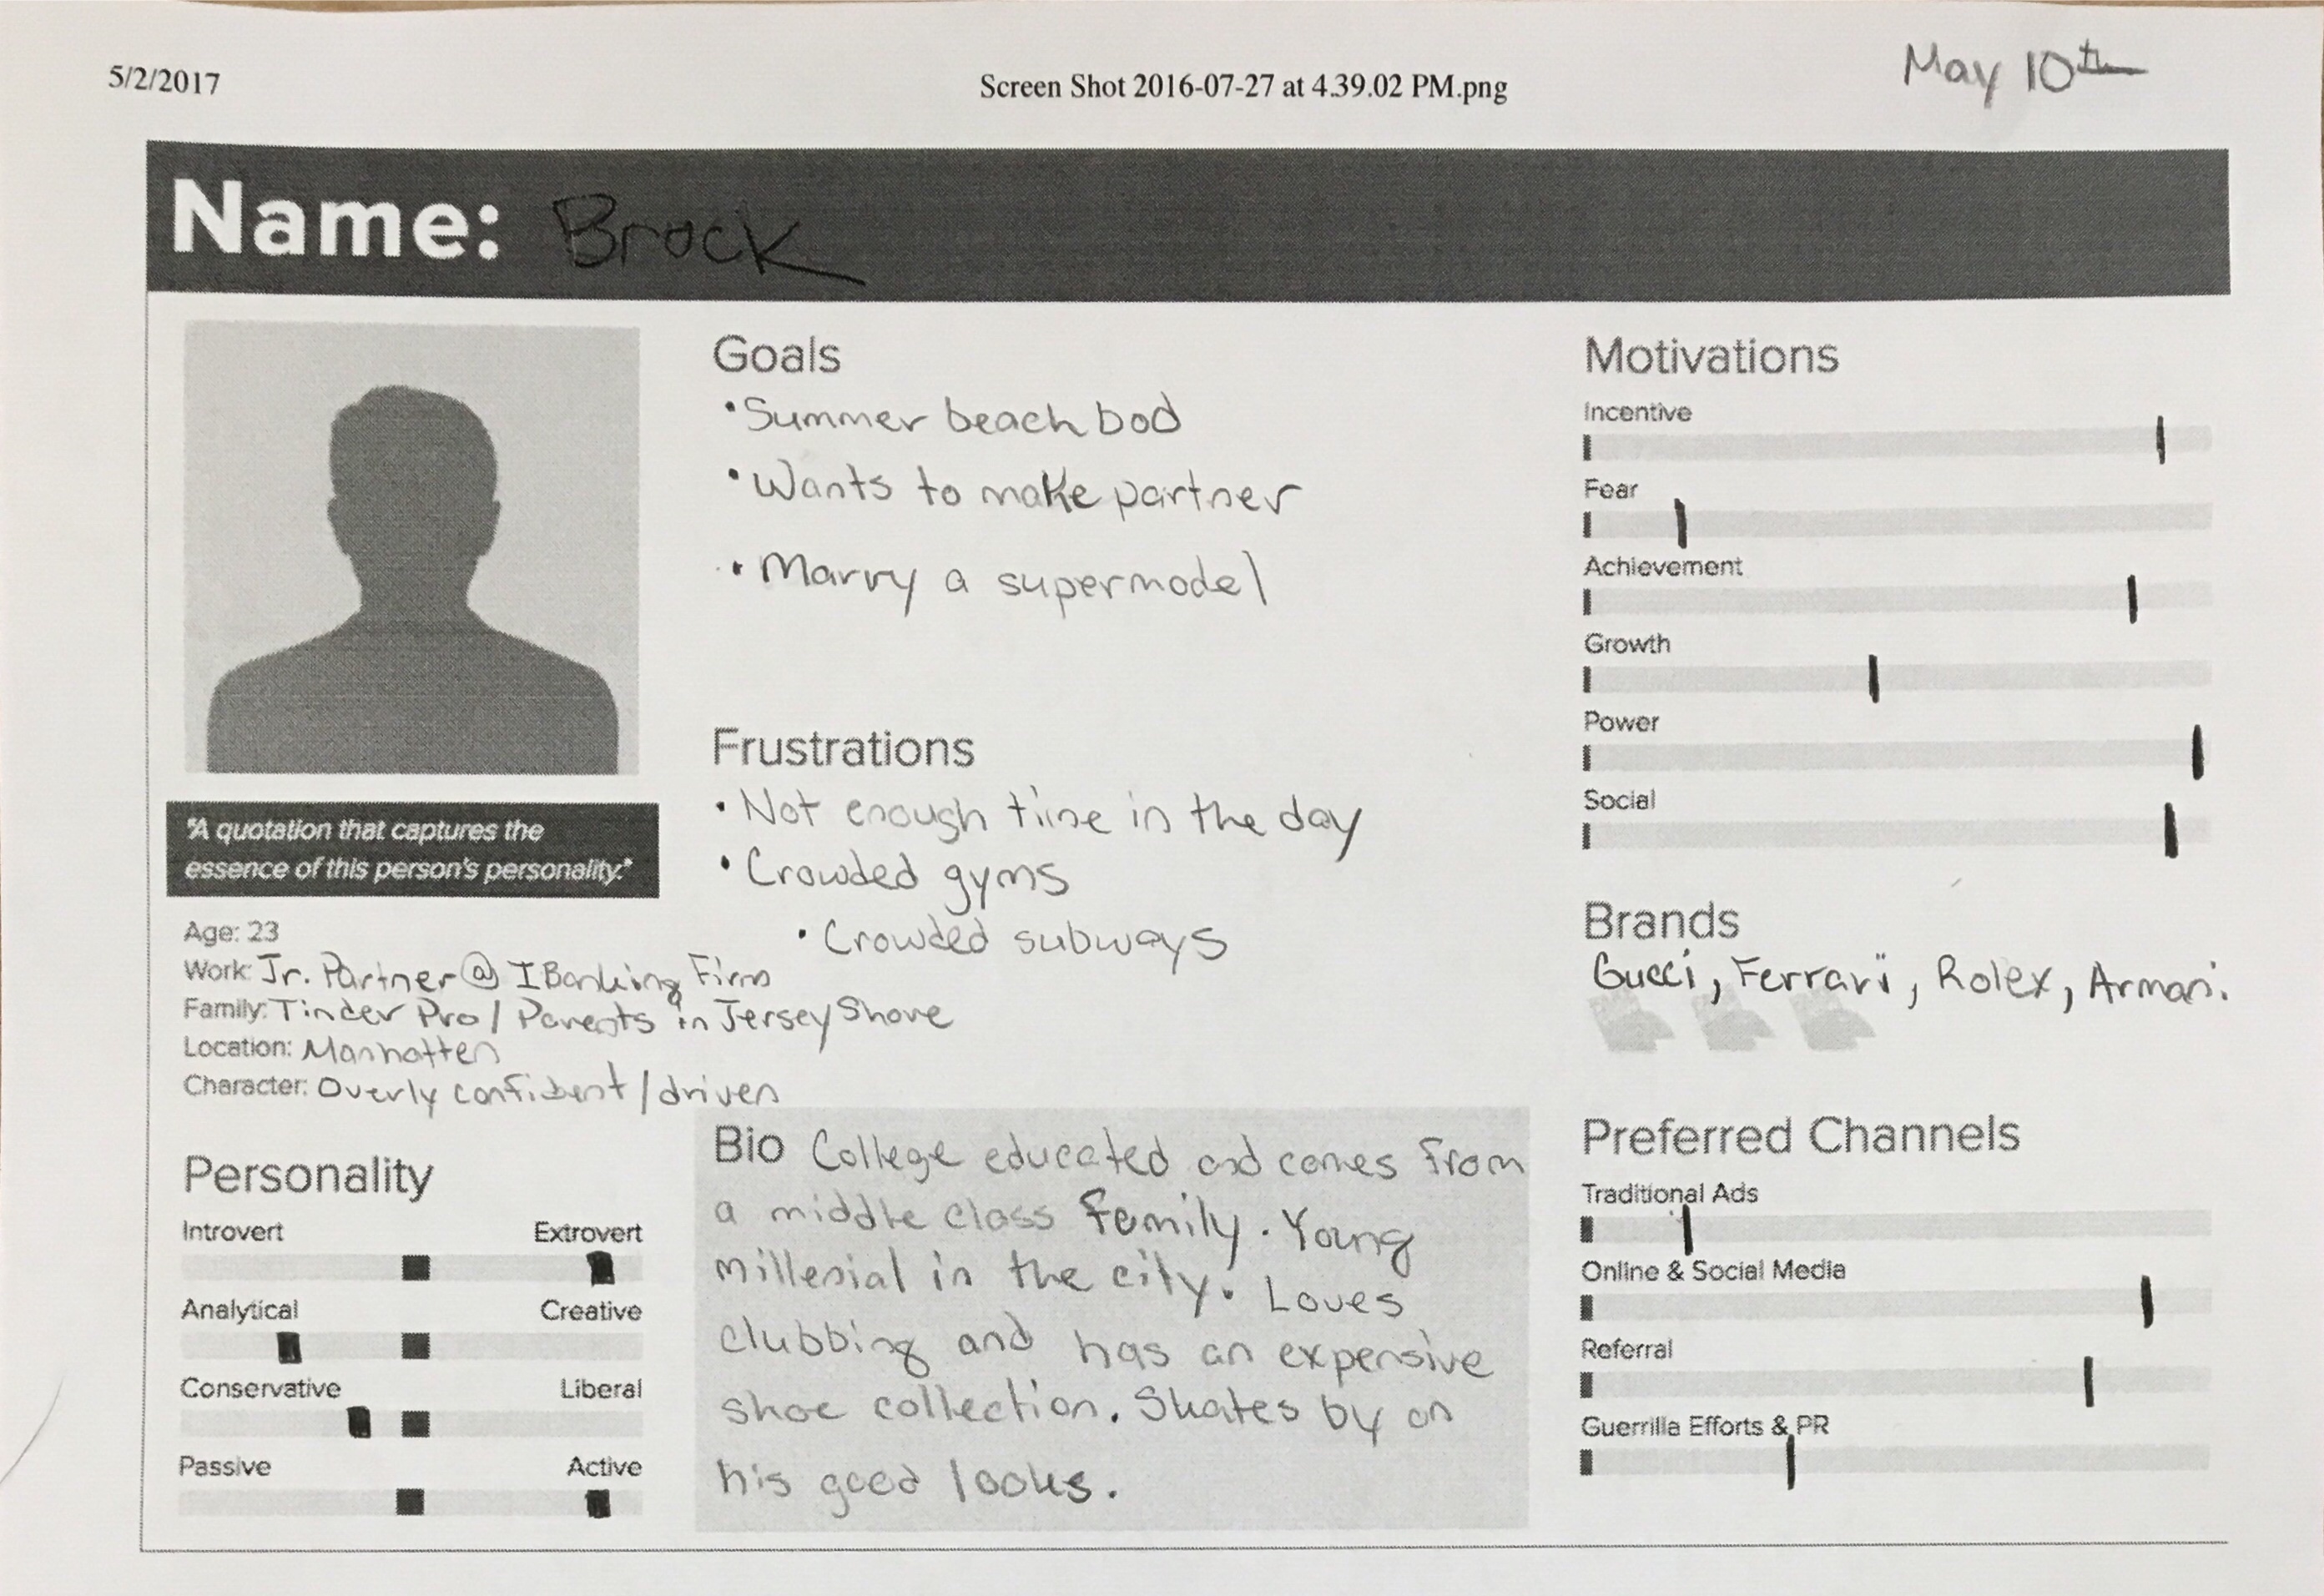 5/2/2017
Screen Shot 2016-07-27 at 4.39.02 PM.png
May 10th
Name: Brock
"A quotation that captures the
essence of this person's personality."
Age: 23
Work: Jr. Partner @ I Banking Firm
Family: Tinder Pro / Parents in Jersey Shore
Location: Manhatten
Character: Overly confident / driven
Personality
Introvert Extrovert
Analytical Creative
Conservative Liberal
Passive Active
Goals
• Summer beach bod
• Wants to make partner
• Marry a supermodel
Frustrations
• Not enough time in the day
• Crowded gyms
• Crowded subways
Bio College educated and comes from
a middle class family. Young
millenial in the city. Loves
clubbing and has an expensive
shoe collection. Skates by on
his good looks.
Motivations
Incentive
Fear
Achievement
Growth
Power
Social
Brands
Gucci, Ferrari, Rolex, Armani.
Preferred Channels
Traditional Ads
Online & Social Media
Referral
Guerrilla Efforts & PR